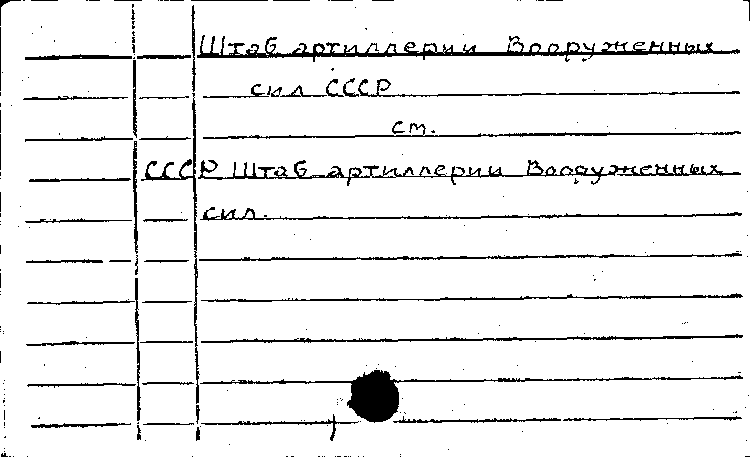 Штаб артиллерии Вооруженных
сил СССР
см.
СССР Штаб артиллерии Вооруженных
сил.